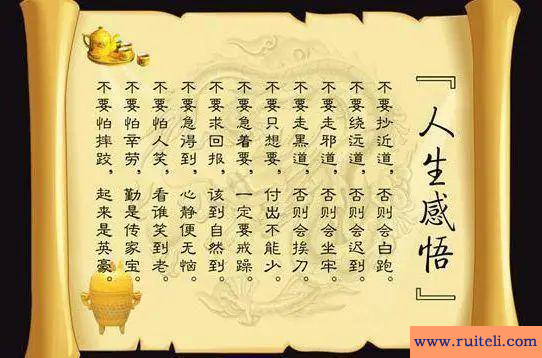 『人生感悟』
不要抄近道，否则会白跑。
不要绕远道，否则会迟到。
不要走邪道，否则会坐牢。
不要走黑道，否则会挨刀。
不要只想要，付出不能少。
不要急着要，一定要戒躁。
不要求回报，该到自然到。
不要急得到，心静便无恼。
不要怕人笑，看谁笑到老。
不要怕辛劳，勤是传家宝。
不要怕摔跤，起来是英豪。
www.ruiteli.com